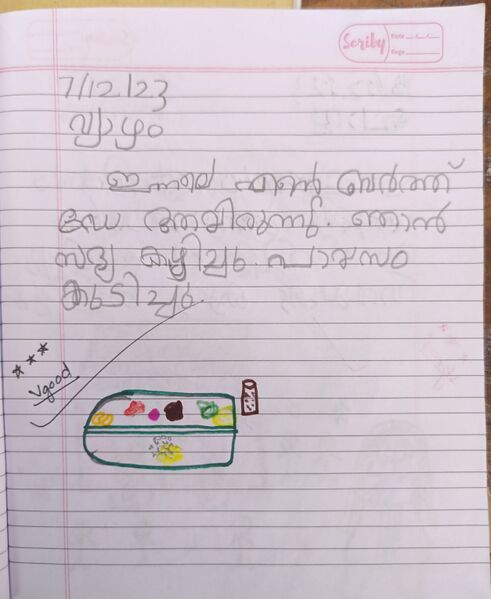 Scriby
Date
Page
7/12/23
വ്യാഴം
ഇന്നലെ എന്റെ ബർത്ത്
ഡേ ആയിരുന്നു. ഞാൻ
സദ്യ കഴിച്ചു. പായസം
കുടിച്ചു.
V good